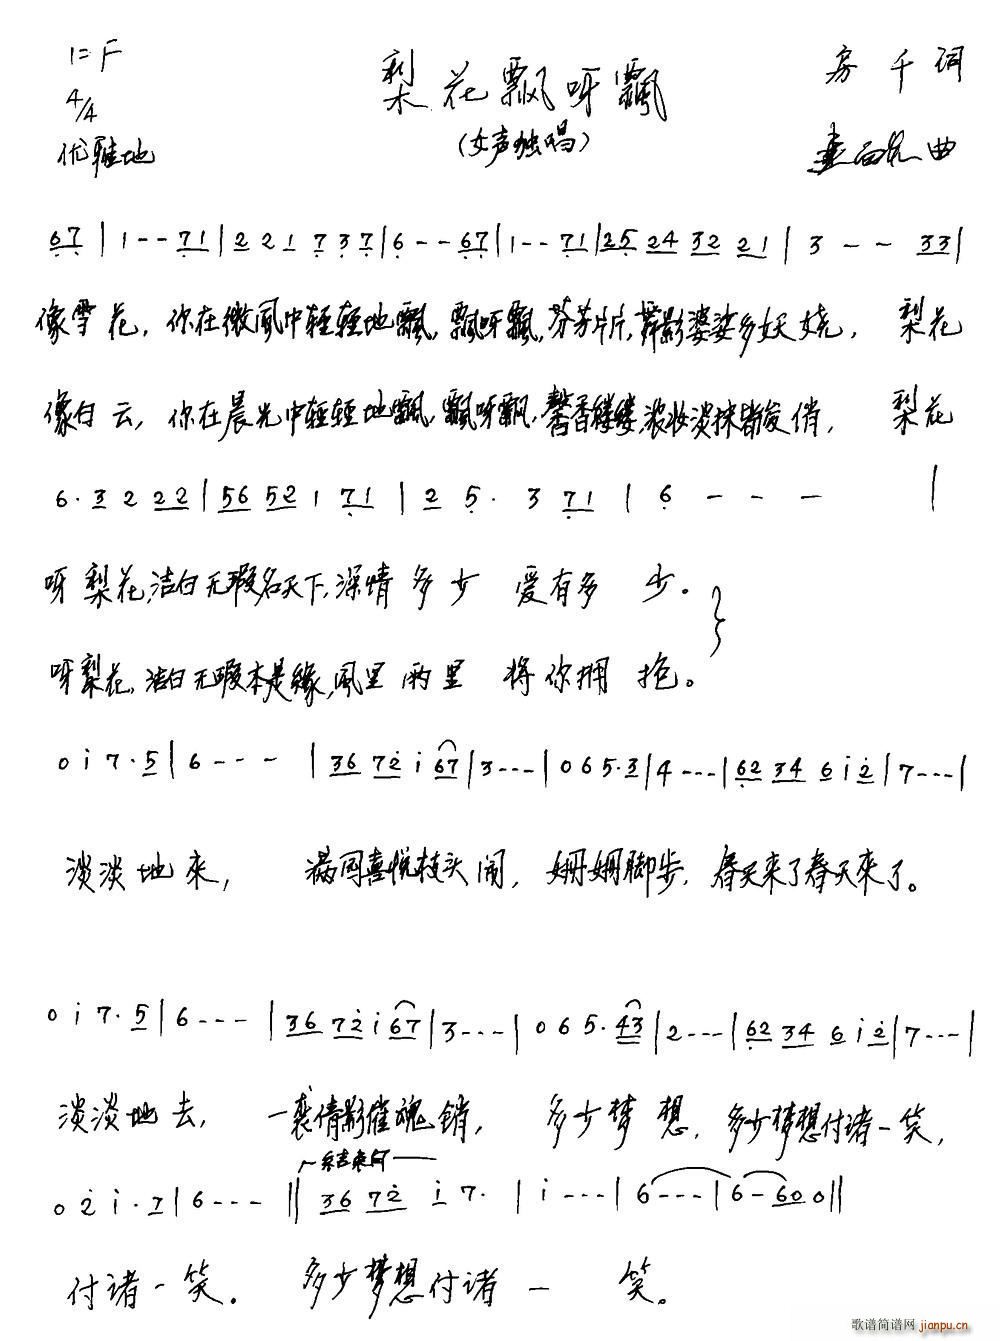 1=F 梨花飘呀飘 房千词
4/4 (女声独唱)
优雅地 曲
67 | 1 - - 71 | 2 2 1 7 3 7 | 6 - - 67 | 1 - - 71 | 25 24 32 21 | 3 - - 33 |
像雪花，你在微风中轻轻地飘，飘呀飘，芬芳片片，舞影婆娑多妖娆， 梨花
像白云，你在晨光中轻轻地飘，飘呀飘，馨香缕缕，浓妆淡抹皆俊俏， 梨花
6. 3 2 22 | 56 52 1 71 | 2 5. 3 71 | 6 - - - |
呀梨花，洁白无瑕名天下，深情多少 爱有多 少。
呀梨花，洁白无瑕本是缘，风里雨里 将你拥 抱。
0 i 7. 5 | 6 - - - | 36 72 i 67 | 3 - - - | 0 6 5. 3 | 4 - - - | 62 34 6 i 2 | 7 - - - |
淡淡地来， 满园喜悦枝头闹，姗姗脚步，春天来了春天来了。
0 i 7. 5 | 6 - - - | 36 72 i 67 | 3 - - - | 0 6 5. 43 | 2 - - - | 62 34 6 i 2 | 7 - - - |
淡淡地去， 一袭倩影催魂销， 多少梦想，多少梦想付诸一笑，
结束句
0 2 i. 7 | 6 - - - || 36 72 i 7. | i - - - | 6 - - - | 6 - 60 0 ||
付诸一笑。 多少梦想付诸一 笑。
歌谱简谱网 jianpu.cn